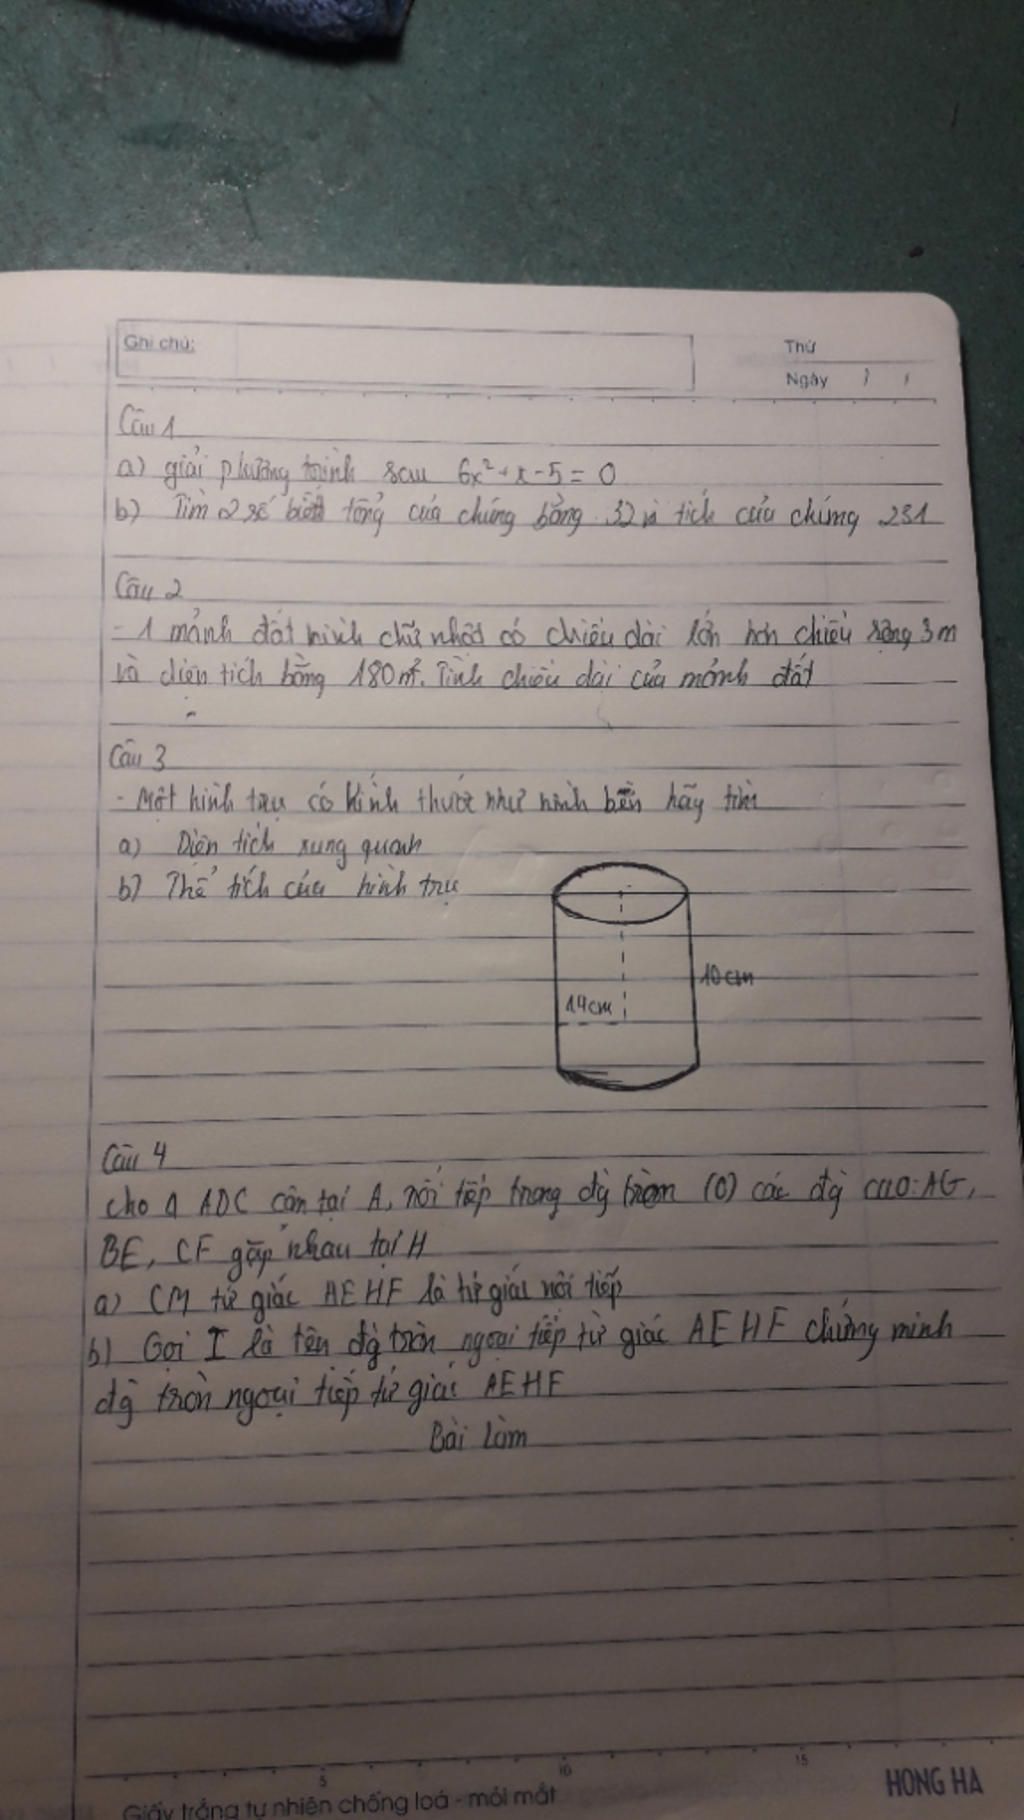 Ghi chú:
Thứ
Ngày / /
Câu 1
a) giải phương trình sau 6x² + x - 5 = 0
b) Tìm 2 số biết tổng của chúng bằng 32 và tích của chúng 231
Câu 2
- 1 mảnh đất hình chữ nhật có chiều dài lớn hơn chiều rộng 3m
và diện tích bằng 180m². Tính chiều dài của mảnh đất
Câu 3
- Một hình trụ có kính thước như hình bên hãy tìm
a) Diện tích xung quanh
b) Thể tích của hình trụ
10cm
14cm
Câu 4
cho Δ ADC cân tại A, nội tiếp trong đg tròn (O) các đg cao AG,
BE, CF gặp nhau tại H
a) CM tứ giác AEHF là tứ giác nội tiếp
b) Gọi I là tên đg tròn ngoại tiếp tứ giác AEHF chứng minh
đg tròn ngoại tiếp tứ giác AEHF
Bài làm
5 10 15
Giấy trắng tự nhiên chống loá - mỏi mắt
HONG HA